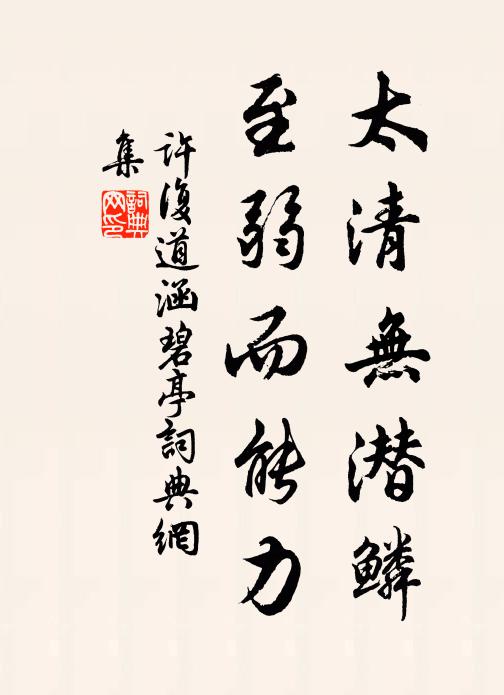 太清無潜鱗
至弱而能力
許復道涵碧亭詞典網
集
詞典
网印